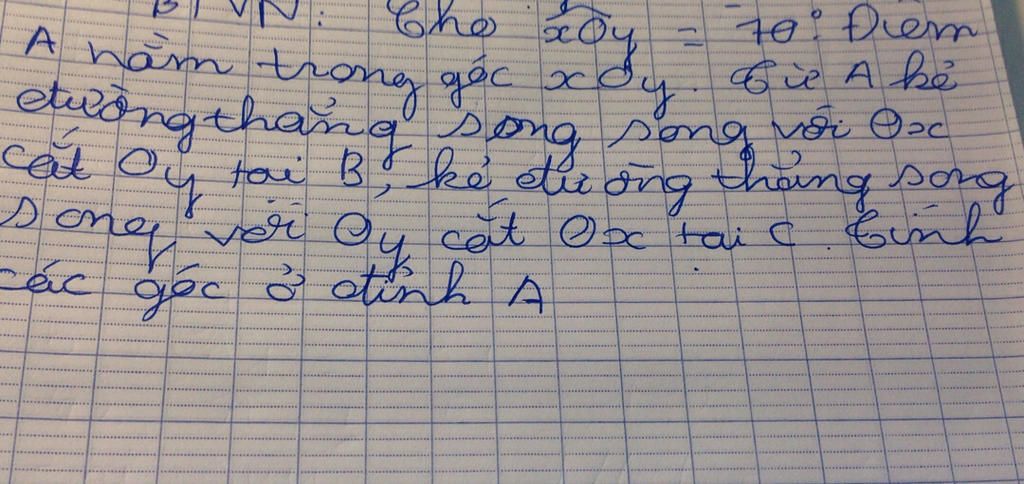 BTVN: Cho xOy = 70°. Điểm
A nằm trong góc xOy. Từ A kẻ
đường thẳng song song với Ox
cắt Oy tại B, kẻ đường thẳng song
song với Oy cắt Ox tại C. Tính
các góc ở đỉnh A